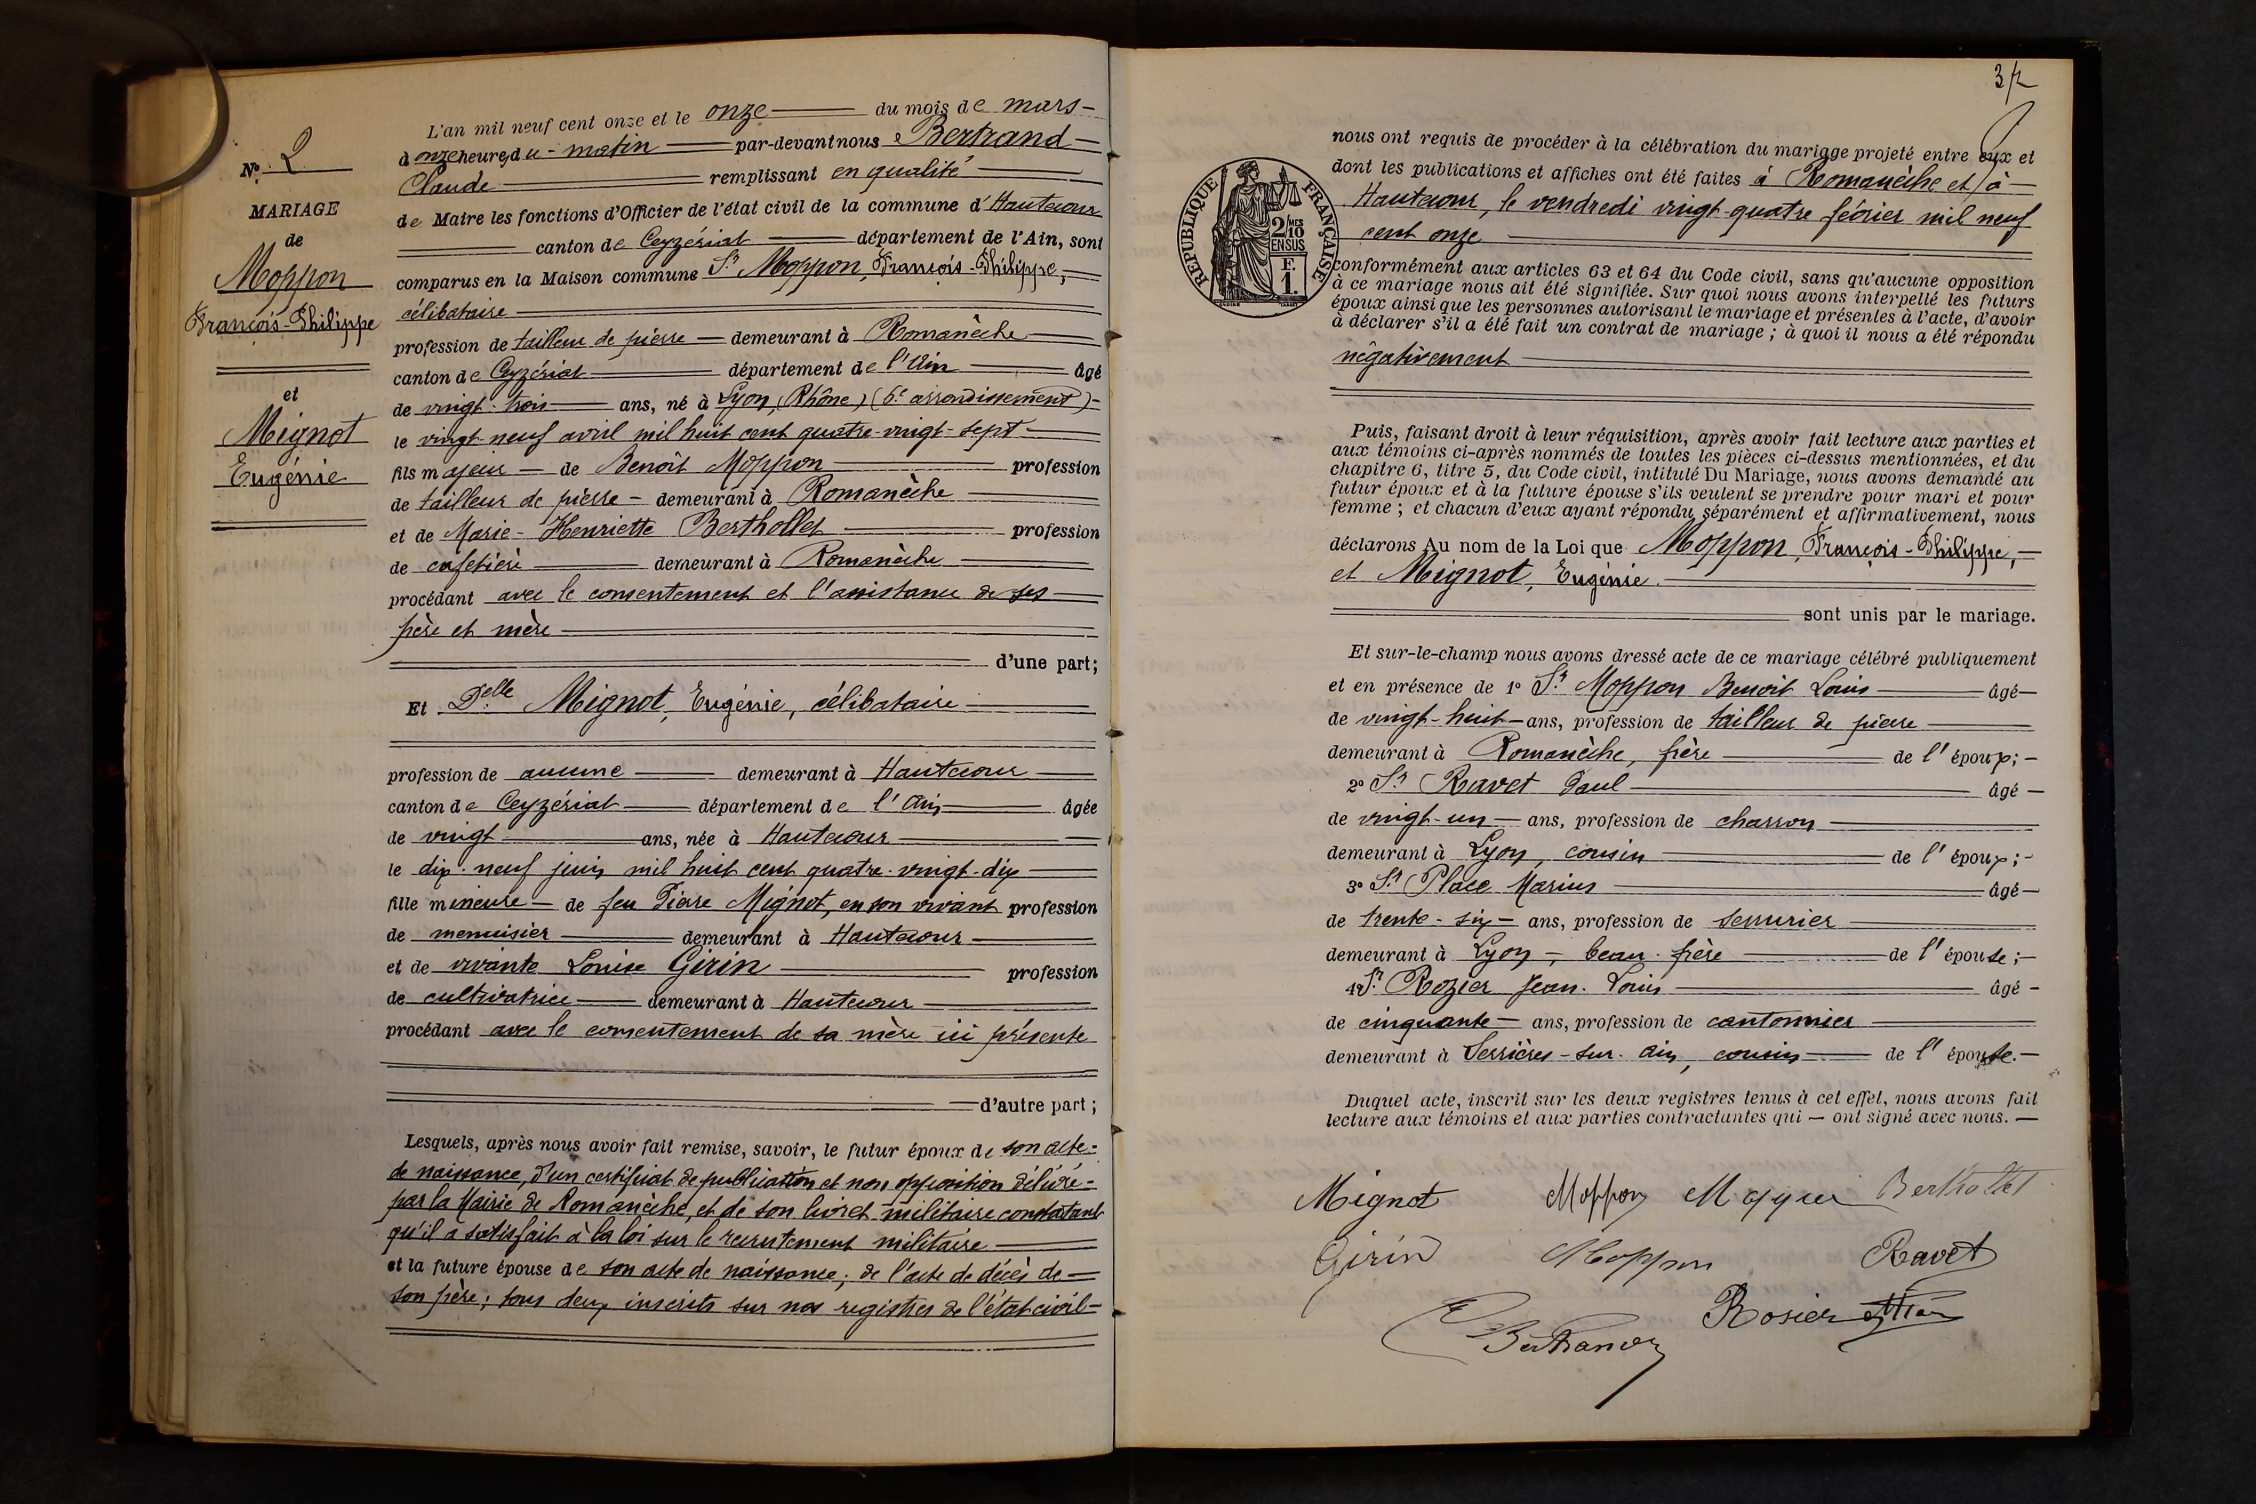 N° 2
MARIAGE
de
Moppon
François-Philippe
et
Mignot
Eugénie
L'an mil neuf cent onze et le onze du mois de mars
à onze heures du matin par-devant nous Bertrand
Claude remplissant en qualité
de Maire les fonctions d'Officier de l'état civil de la commune d'Hautecour
canton de Ceyzériat département de l'Ain, sont
comparus en la Maison commune Sr Moppon, François-Philippe,
célibataire
profession de tailleur de pierre demeurant à Romanèche
canton de Ceyzériat département de l'Ain âgé
de vingt-trois ans, né à Lyon, (Rhône) (6e arrondissement)
le vingt-neuf avril mil huit cent quatre-vingt-sept
fils majeur de Benoît Moppon profession
de tailleur de pierre demeurant à Romanèche
et de Marie-Henriette Berthollet profession
de cafetière demeurant à Romanèche
procédant avec le consentement et l'assistance de ses
père et mère
d'une part;
Et Delle Mignot, Eugénie, célibataire
profession de aucune demeurant à Hautecour
canton de Ceyzériat département de l'Ain âgée
de vingt ans, née à Hautecour
le dix-neuf juin mil huit cent quatre-vingt-dix
fille mineure de feu Pierre Mignot, en son vivant profession
de menuisier demeurant à Hautecour
et de vivante Louise Girin profession
de cultivatrice demeurant à Hautecour
procédant avec le consentement de sa mère ici présente
d'autre part;
Lesquels, après nous avoir fait remise, savoir, le futur époux de son acte
de naissance, d'un certificat de publication et non opposition délivré
par la Mairie de Romanèche, et de son livret militaire constatant
qu'il a satisfait à la loi sur le recrutement militaire
et la future épouse de son acte de naissance; de l'acte de décès de
son père; tous deux inscrits sur nos registres de l'état civil
nous ont requis de procéder à la célébration du mariage projeté entre eux et
dont les publications et affiches ont été faites à Romanèche et à
Hautecour, le vendredi vingt-quatre février mil neuf
cent onze
RÉPUBLIQUE FRANÇAISE
2/10 MES
EN SUS
F.
1.
conformément aux articles 63 et 64 du Code civil, sans qu'aucune opposition
à ce mariage nous ait été signifiée. Sur quoi nous avons interpellé les futurs
époux ainsi que les personnes autorisant le mariage et présentes à l'acte, d'avoir
à déclarer s'il a été fait un contrat de mariage; à quoi il nous a été répondu
négativement
Puis, faisant droit à leur réquisition, après avoir fait lecture aux parties et
aux témoins ci-après nommés de toutes les pièces ci-dessus mentionnées, et du
chapitre 6, titre 5, du Code civil, intitulé Du Mariage, nous avons demandé au
futur époux et à la future épouse s'ils veulent se prendre pour mari et pour
femme; et chacun d'eux ayant répondu séparément et affirmativement, nous
déclarons Au nom de la Loi que Moppon, François-Philippe,
et Mignot, Eugénie.
sont unis par le mariage.
Et sur-le-champ nous avons dressé acte de ce mariage célébré publiquement
et en présence de 1° Sr Moppon Benoît Louis âgé
de vingt-huit ans, profession de tailleur de pierre
demeurant à Romanèche, frère de l'époux;
2° Sr Ravet Paul âgé
de vingt-un ans, profession de charron
demeurant à Lyon, cousin de l'époux;
3° Sr Place Marius âgé
de trente-six ans, profession de serrurier
demeurant à Lyon, beau-frère de l'épouse;
4° Sr Rozier Jean-Louis âgé
de cinquante ans, profession de cantonnier
demeurant à Serrières-sur-Ain, cousin de l'épouse.
Duquel acte, inscrit sur les deux registres tenus à cet effet, nous avons fait
lecture aux témoins et aux parties contractantes qui ont signé avec nous.
Mignot Moppon Berthollet
Girin Moppon Ravet
Rosier
Bertrand